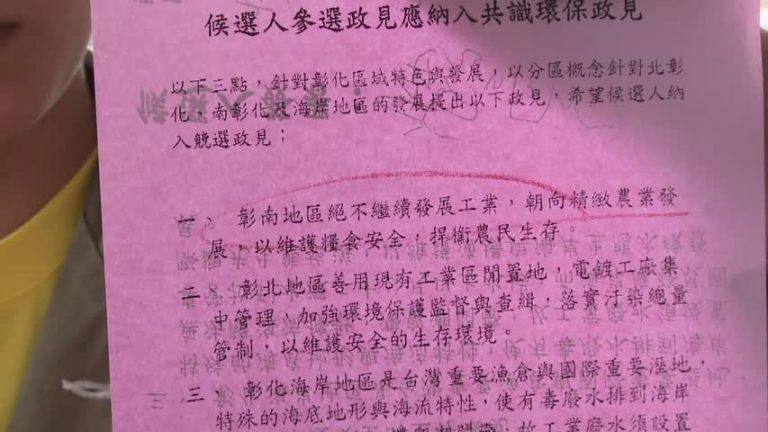 候選人參選政見應納入共識環保政見
以下三點，針對彰化區域特色與發展，以分區概念針對北彰
化、南彰化及海岸地區的發展提出以下政見，希望候選人納
入競選政見；
一、 彰南地區絕不繼續發展工業，朝向精緻農業發
展，以維護糧食安全，捍衛農民生存。
二、 彰北地區善用現有工業區閒置地，電鍍工廠集
中管理、加強環境保護監督與查緝，落實汙染總量
管制，以維護安全的生存環境。
三 彰化海岸地區是台灣重要漁倉與國際重要溼地，
特殊的海底地形與海流特性，使有毒廢水排到海岸
故工業廢水須設置